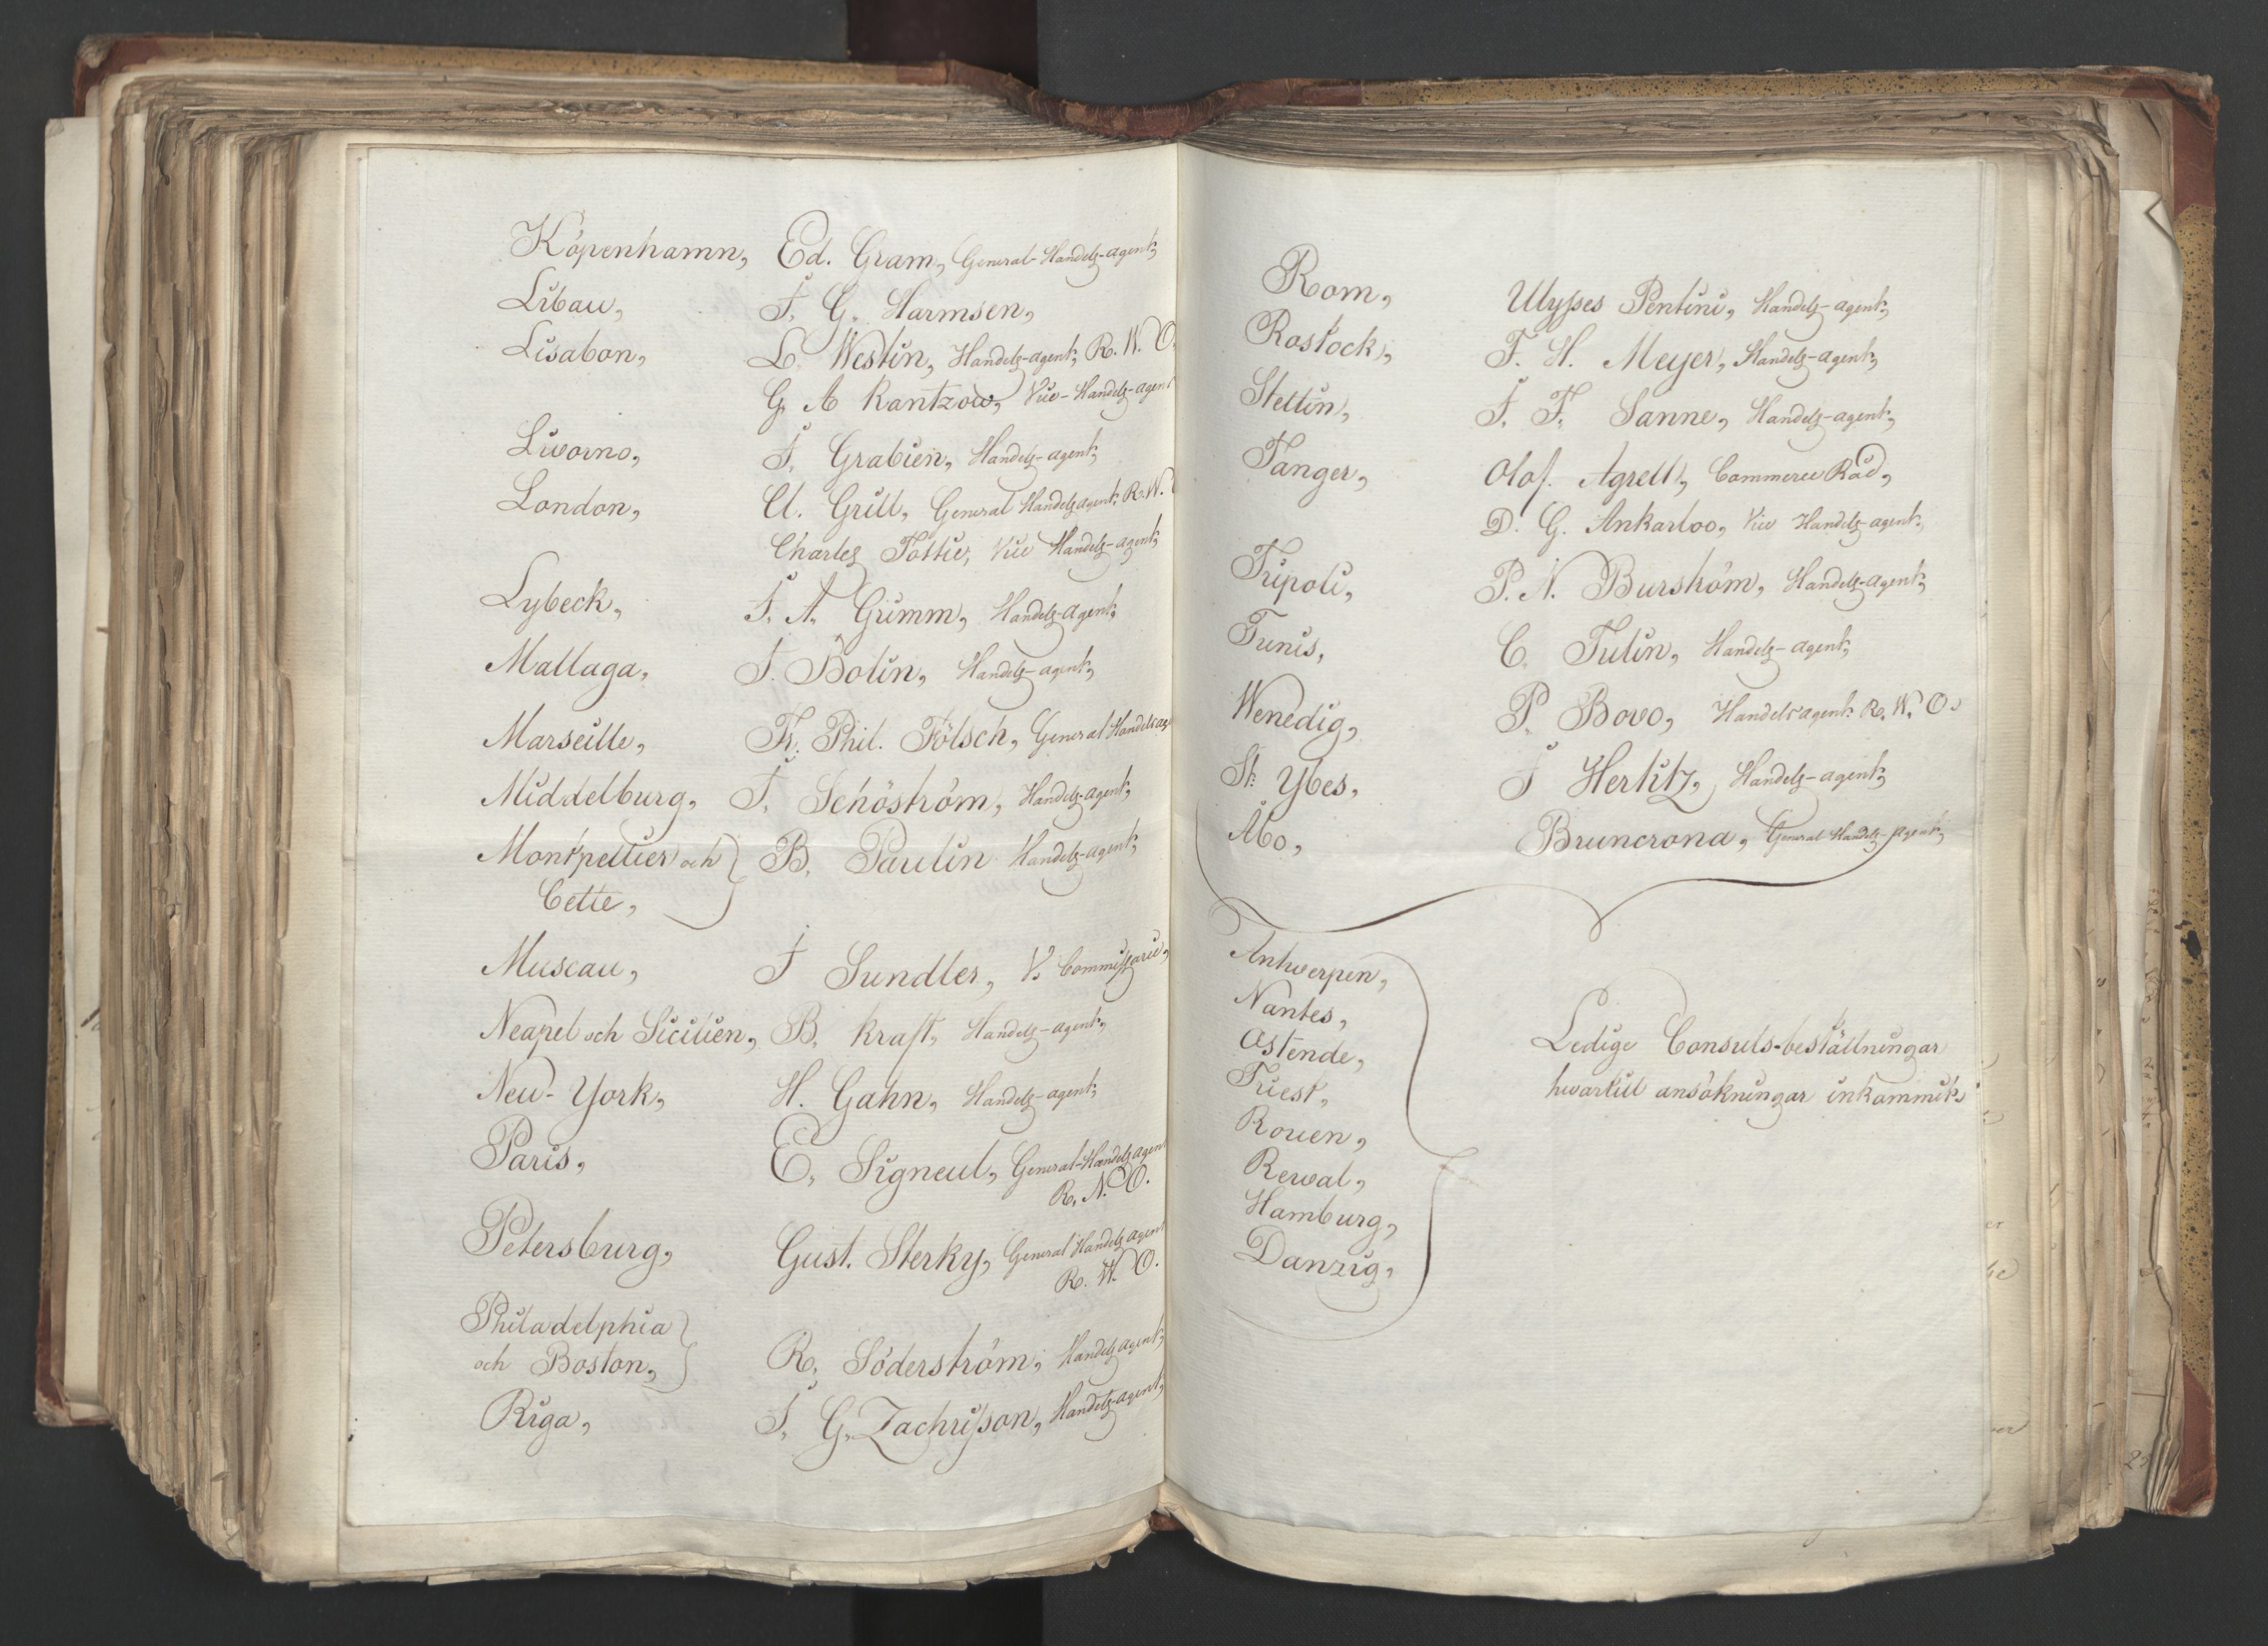 Köpenhamn, Ed. Gram, General-Handels-agent,
Libau, J. G. Harmsen,
Lisabon, L. Westin, Handels-agent, R. W. O.
G. A Kantzow, Vice-Handels-agent
Livorno, J. Grabien, Handels-agent,
London, Cl. Grill, General Handelsagent R. W.
Charles Tottie, Vice Handels-agent,
Lybeck, J. A. Grimm, Handels-agent,
Mallaga, J. Bolin, Handels-agent,
Marseille, Fr. Phil. Fölsch, General Handelsag
Middelburg, J. Schöström, Handels-agent,
Montpellier och } B. Paulin Handels-agent,
Cette,
Muscau, J Sundler, V. Commissarie,
Neapel och Sicilien, B. Kraft, Handels-agent,
New-York, H. Gahn, Handels-agent,
Paris, E. Signeul, General-Handelsagent
R. N. O.
Petersburg, Gust. Sterky, General Handels agent
R. W. O.
Philadelphia }
och Boston, } R. Söderström, Handelsagent,
Riga, J. G. Zachrisson, Handels-agent,
Rom, Ulysses Pentini, Handels-agent,
Rostock, F. H. Meyer, Handels-agent,
Stettin, J. F. Sanne, Handels-agent,
Tanger, Olof. Agrell, Commerce Råd,
D. G. Ankarloo, Vice Handels-agent,
Tripoli, P. N. Burström, Handels-agent,
Tunis, C. Tulin, Handels-agent,
Wenedig, P. Bovo, Handelsagent R. W. O.
St. Ybes, J Herlitz, Handels-agent,
Åbo, Bruncrona, General Handels-Agent,
Antwerpen,
Nantes,
Ostende,
Triest,
Rouen,
Rewal,
Hamburg,
Danzig,
Ledige Consuls-beställningar
hwartill ansökningar inkommit.